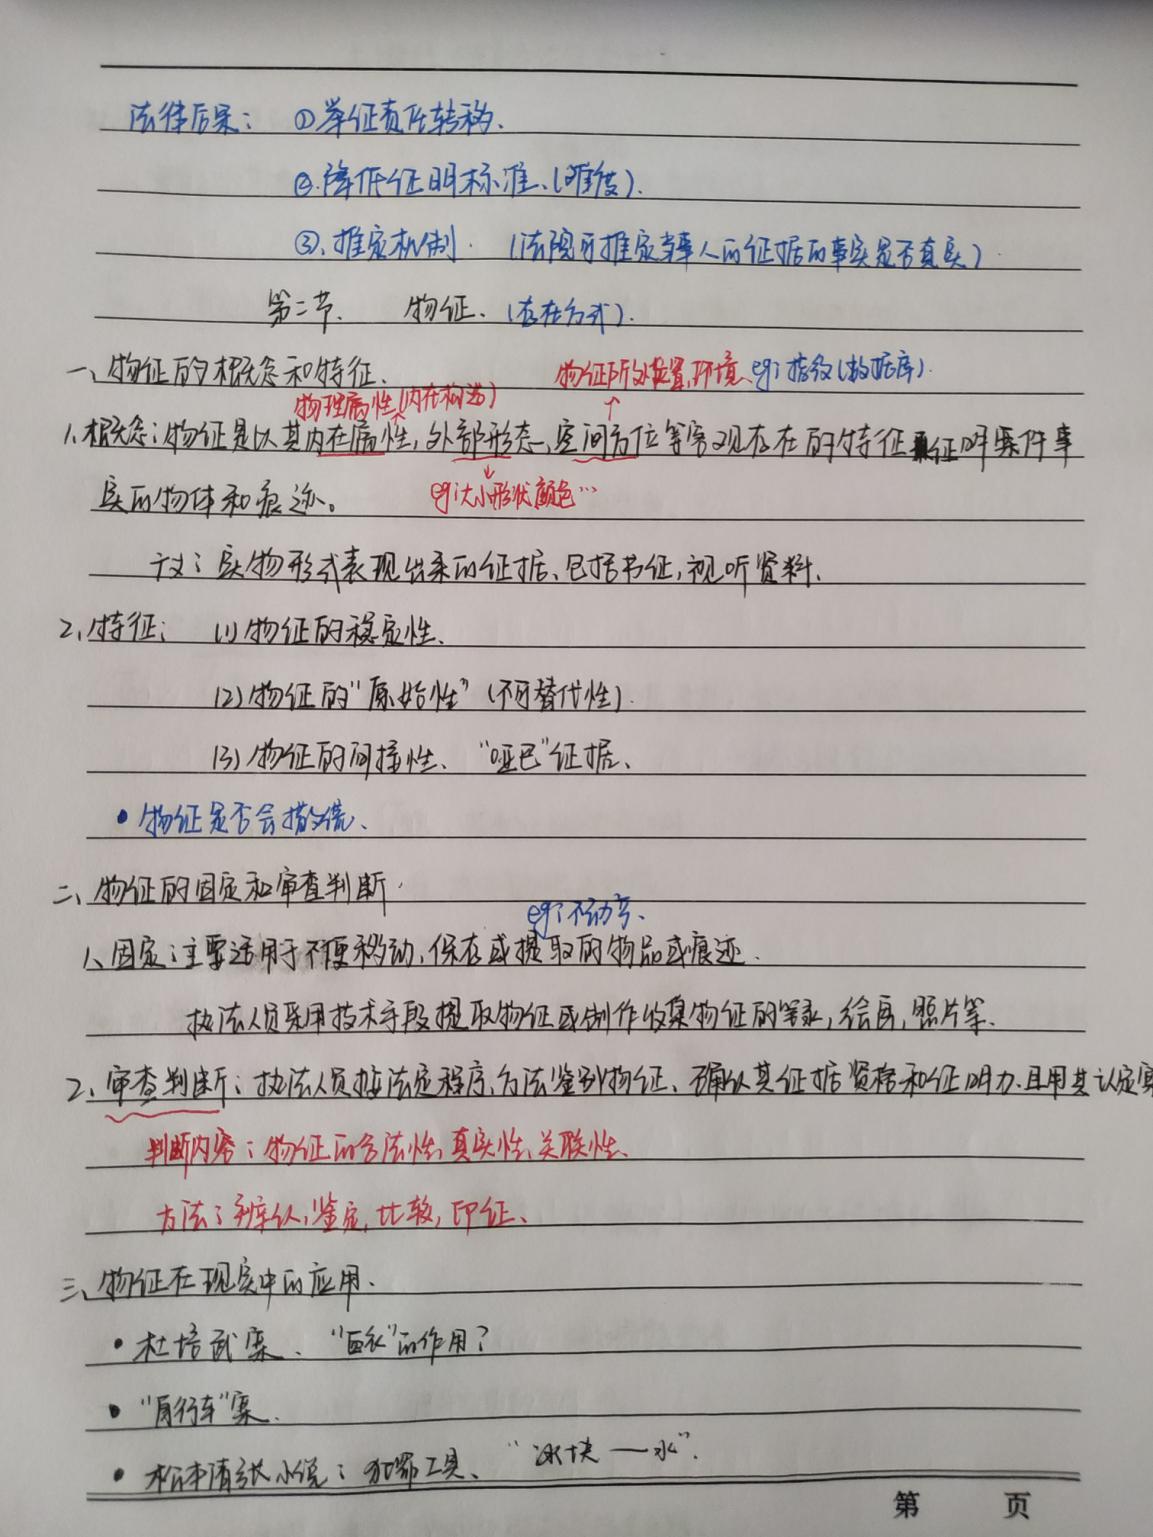 法律后果： ①举证责任转移.
②.降低证明标准、(难度).
③.推定机制. (法院可推定当事人的证据的事实是否真实)
第二节、 物证、(存在方式).
一、物证的概念和特征.
物证所处位置,环境、eg:指纹(数据库).
物理属性(内在构造)
1、概念：物证是以其内在属性,外部形态,空间方位等客观存在的特征证明案件事
eg:大小形状颜色…
实的物体和痕迹。
广义：实物形式表现出来的证据、包括书证,视听资料.
2、特征： (1)物证的稳定性、
(2)物证的“原始性”(不可替代性).
(3)物证的间接性、“哑巴”证据、
• 物证是否会撒谎、
二、物证的固定和审查判断.
eg:不动产、
1、固定：主要适用于不便移动,保存或提取的物品或痕迹.
执法人员采用技术手段提取物证或制作收集物证的笔录,绘画,照片等.
2、审查判断：执法人员按法定程序,方法鉴别物证、确认其证据资格和证明力.且用其认定案
判断内容：物证的合法性,真实性,关联性、
方法：辨认,鉴定,比较,印证、
三、物证在现实中的应用.
• 杜培武案、 的作用?
• “自行车”案.
• 松本清张小说：犯罪工具、 “冰块——水”.
第 页